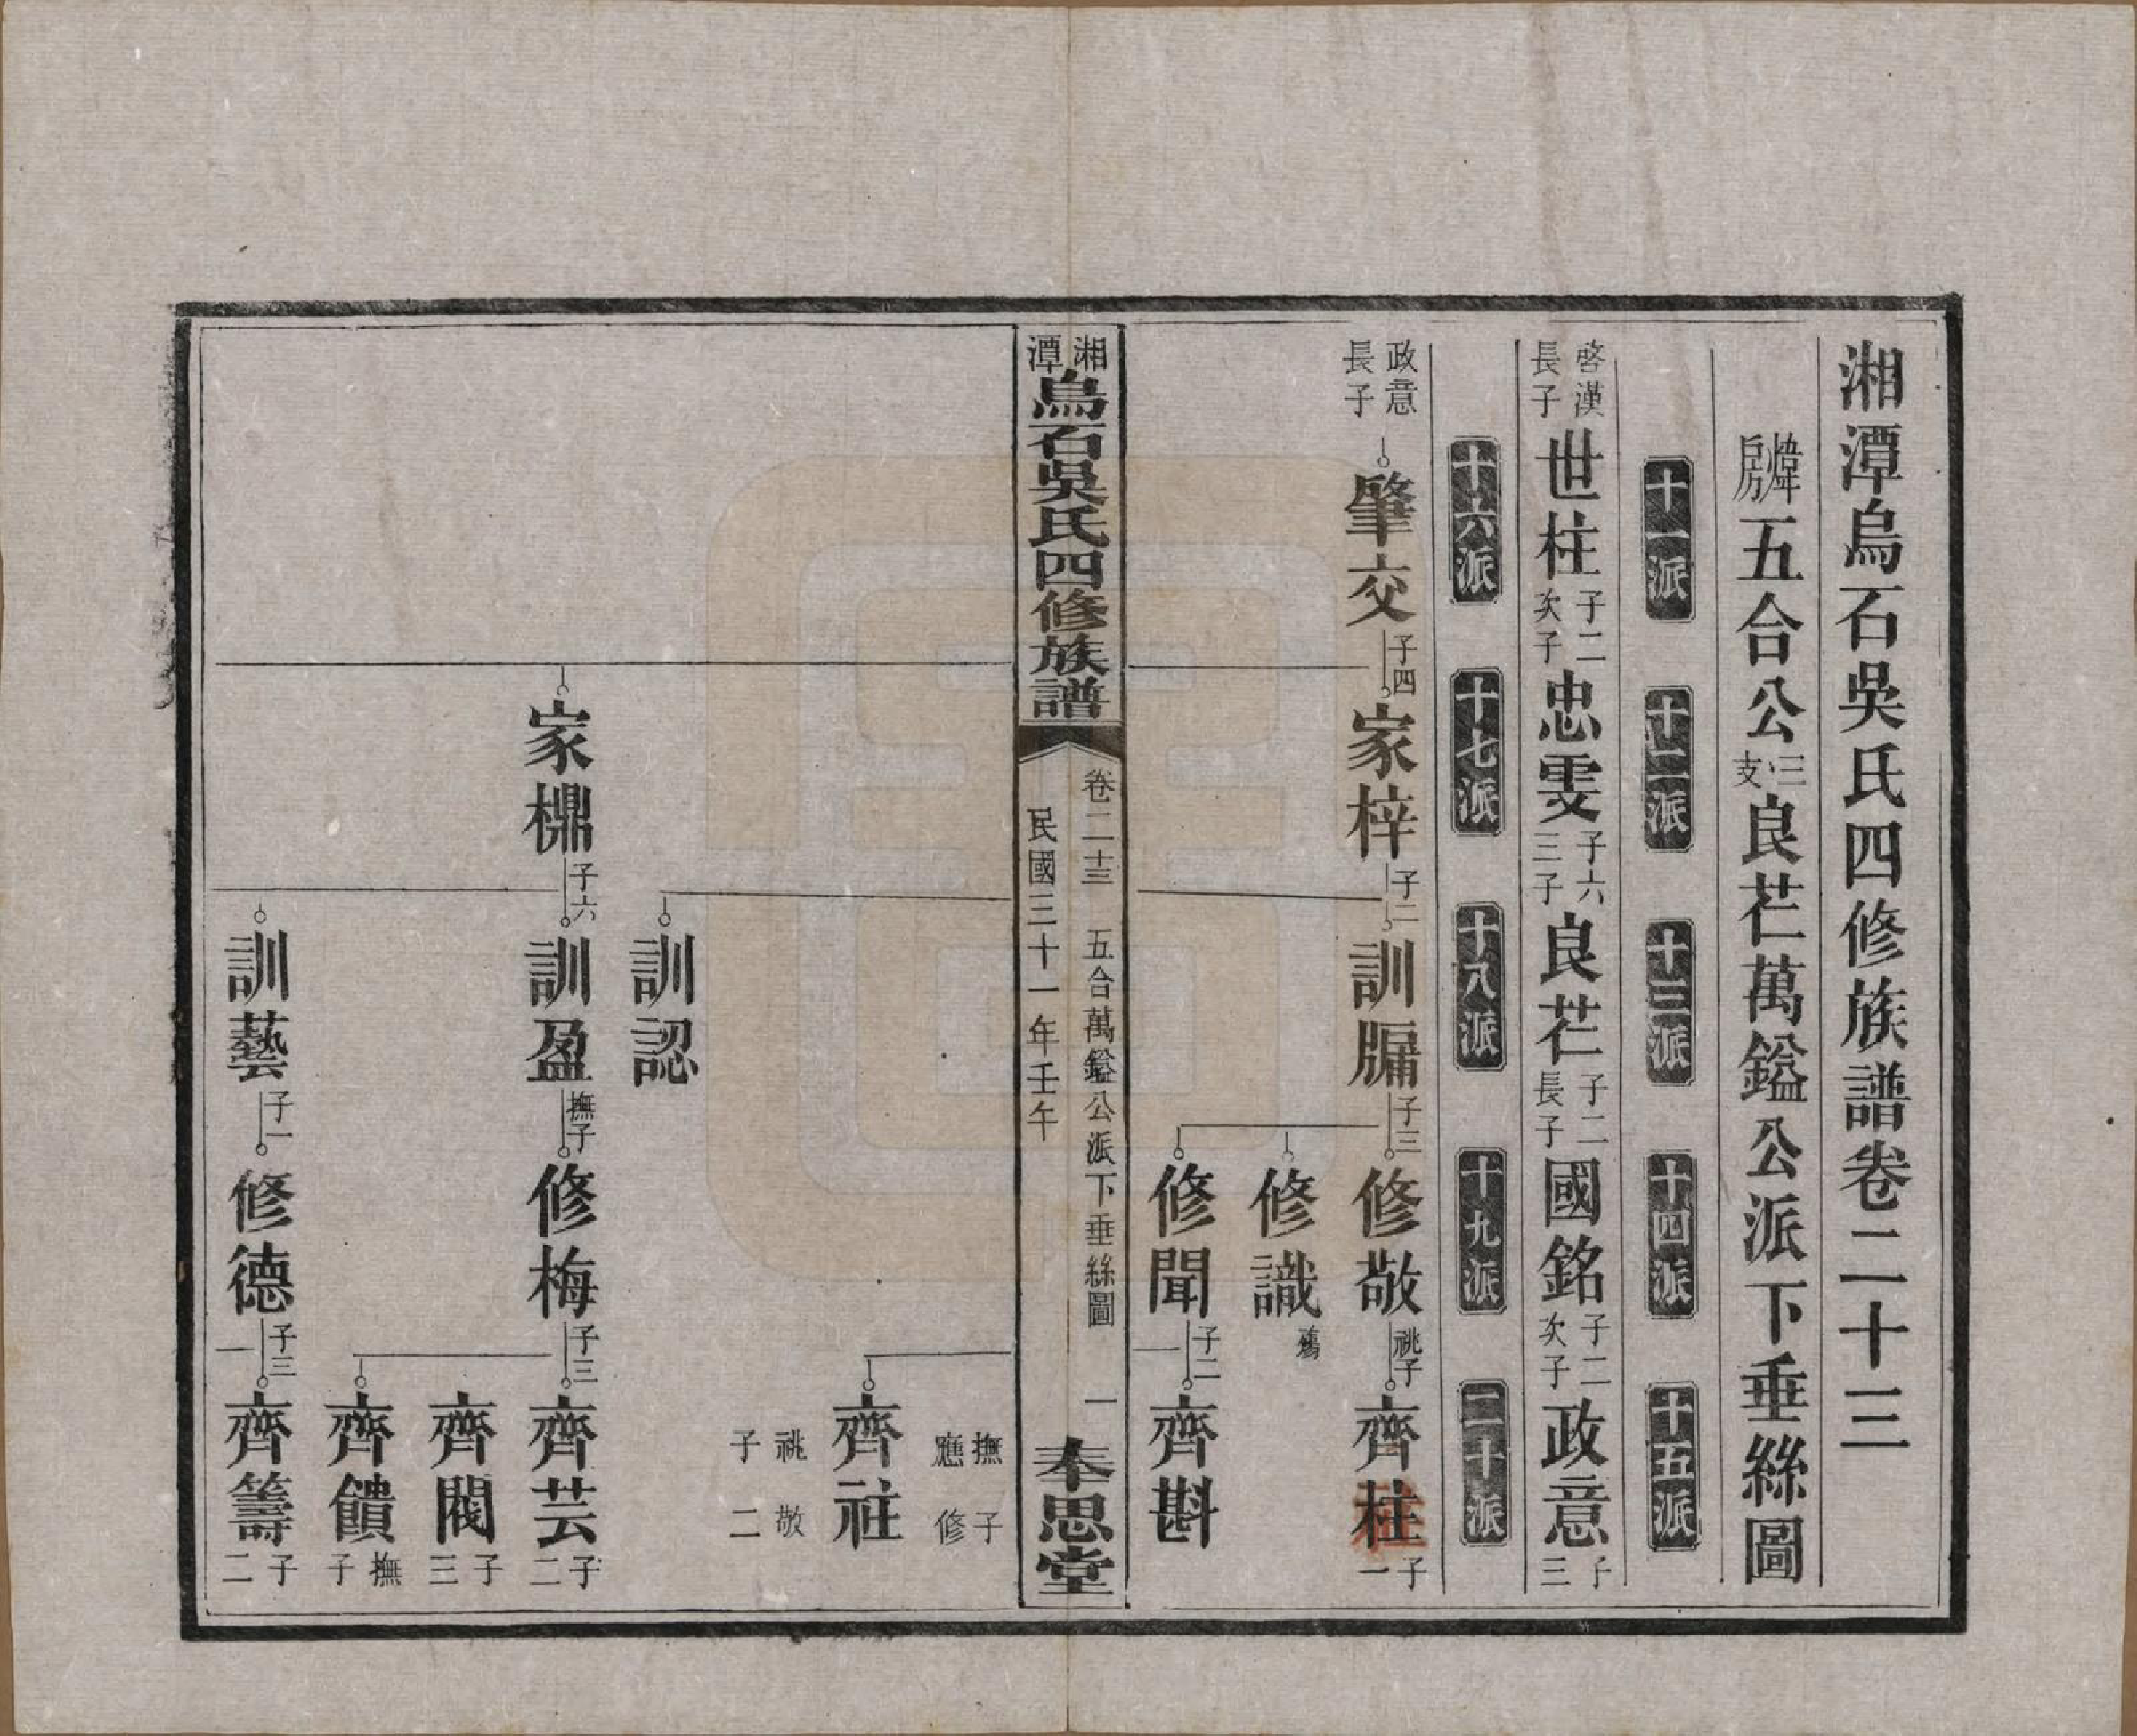 湘潭烏石吳氏四修族譜卷二十三
煒房五合公三支良芒萬鎰公派下垂絲圖
十一派 十二派 十三派 十四派 十五派
啓漢長子世柱子二次子忠雯子六三子良芒子二長子國銘子二次子政意子三
十六派 十七派 十八派 十九派 二十派
政意長子肇交子四家梓子二訓牖子三修敬祧子齊柱子一
修識
修聞子二齊斟
湘潭烏石吳氏四修族譜 卷二十三 五合萬鎰公派下垂絲圖 一 奉思堂
民國三十一年壬午
撫子應修
齊社祧敬子二
訓認
家㯲子六訓盈撫子修梅子三齊芸子二
齊閥子三
齊饋撫子
訓藝子一修德子三齊籌子二